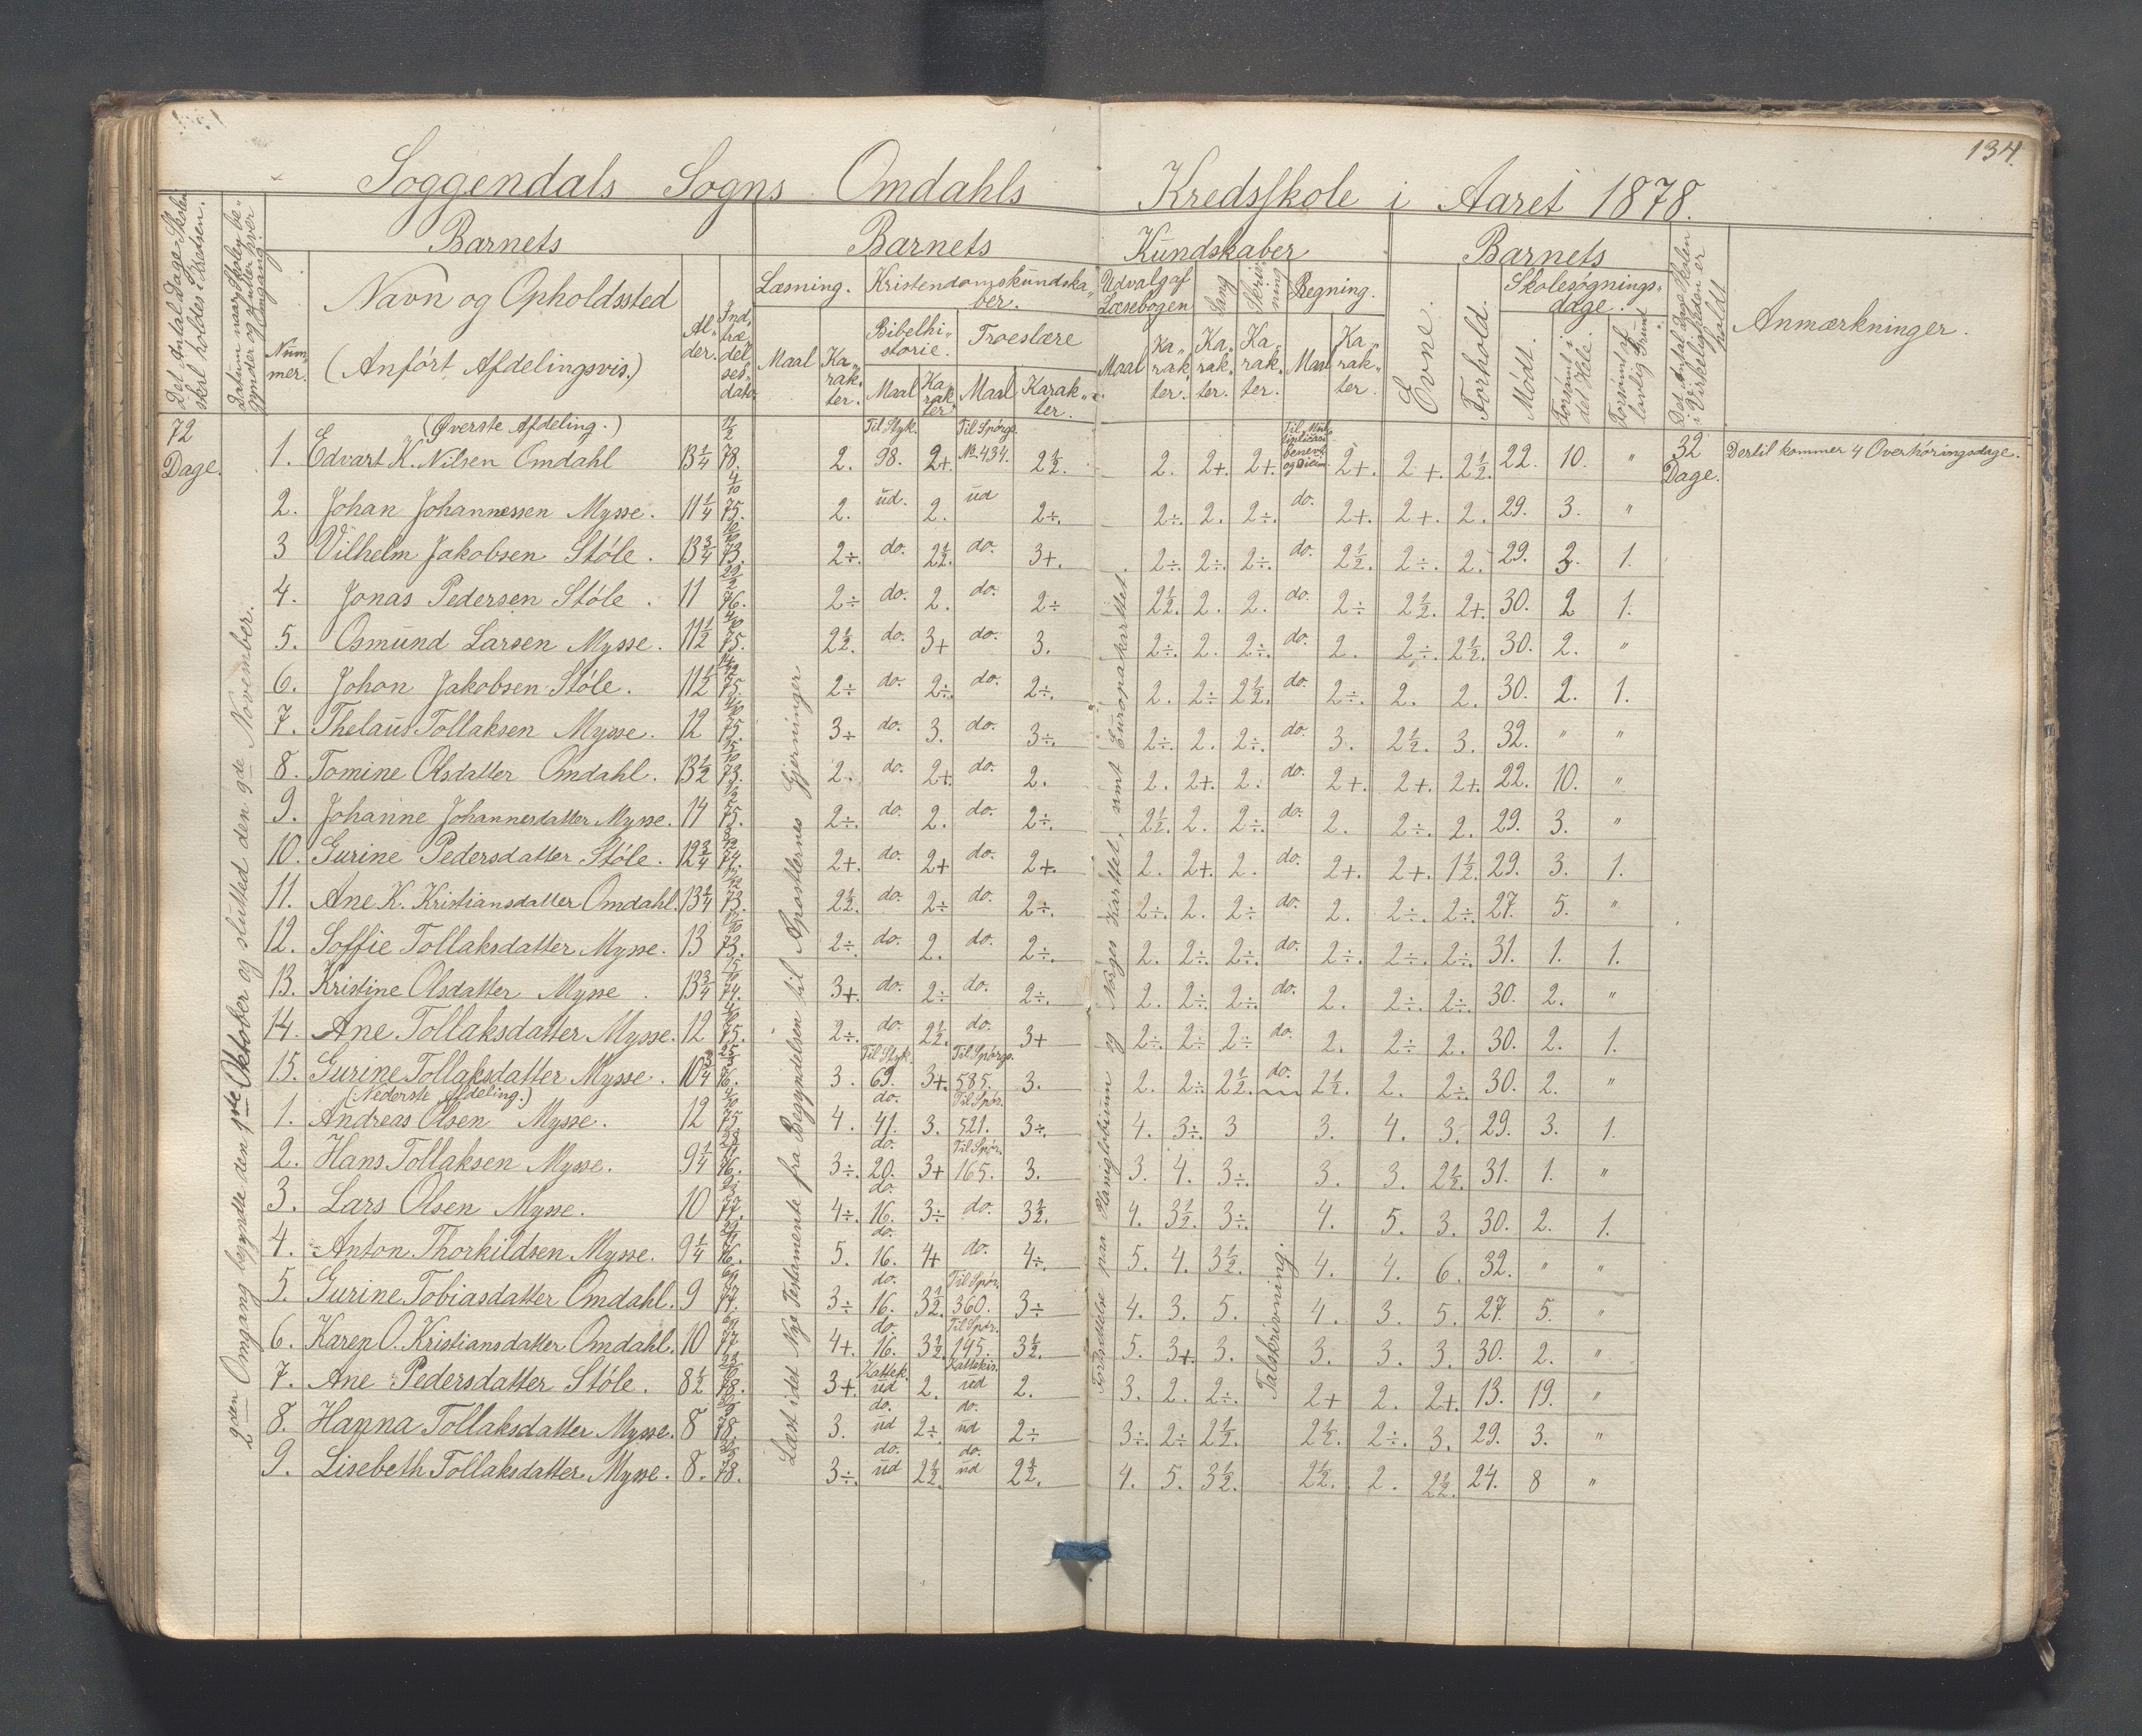 134.
Soggendals Sogns Omdahls Kredsskole i Aaret 1878.
Det Antal Dage Skolen skal holdes i Kredsen.
Datum naar Skolen begynder og slutter hver Omgang.
Barnets
Barnets Kundskaber
Barnets
Det Antal Dage Skolen i Virkeligheden er holdt
Anmærkninger.
Nummer.
Navn og Opholdssted
(Anført Afdelingsvis.)
Alder.
Indtrædelsesdato.
Læsning.
Kristendomskundskaber.
Udvalg af Læsebogen
Sang
Skrivning
Regning.
Evne.
Forhold.
Skolesøgningsdage.
Bibelhistorie.
Troeslære
Maal
Karakter.
Maal
Karakter
Maal
Karakter.
Maal
Karakter.
Karakter.
Karakter.
Maal
Karakter
Mødt.
Forsømt i det Hele
Forsømt af lovlig Grund
72 Dage.
2den Omgang begyndte den 1ste Oktober og sluttet den 9de November.
Læst i det Nye Testamente fra Begyndelsen til Apostlernes Gjerninger
Forklarelse paa Planiglobium og Norges Karttet, samt Europakarttet
Talskrivning.
32 Dage.
Dertil kommer 4 Overhøringsdage.
(Øverste Afdeling.)
1. Edvart K. Nilsen Omdahl 13 1/4 78. 2. Til Styk. 98. 2+. Til Spørgs. No 434. 2 1/2. 2. 2+. 2+. 2+. 2+. 2 1/2. 22. 10. "
2. Johan Johannessen Mysse. 11 1/4 75. 2. ud. 2. ud 2÷. 2÷. 2. 2÷. do. 2+. 2+. 2. 29. 3. "
3 Vilhelm Jakobsen Støle. 13 3/4 73. 2÷. do. 2 1/2. do. 3+. 2÷. 2÷. 2÷. do. 2 1/2. 2÷. 2. 29. 3. 1.
4. Jonas Pedersen Støle. 11 76. 2÷ do. 2. do. 2÷ 2 1/2. 2. 2. do. 2÷ 2 1/2. 2+. 30. 2 1.
5. Osmund Larsen Mysse. 11 1/2 75. 2 1/2. do. 3+ do. 3. 2÷. 2. 2÷. do. 2. 2÷. 2 1/2. 30. 2. "
6. Johan Jakobsen Støle. 11 1/2 75. 2÷ do. 2÷. do. 2÷. 2. 2÷ 2 1/2. do. 2÷. 2. 2. 30. 2. 1.
7. Thelaus Tollaksen Mysse. 12 75. 3÷ do. 3. do. 3÷. 2÷. 2. 2÷. do. 3. 2 1/2. 3. 32. " "
8. Tomine Olsdatter Omdahl. 13 1/2 73. 2. do. 2+ do. 2. 2. 2+. 2. do. 2+. 2+. 2+. 22. 10. "
9. Johanne Johannesdatter Mysse. 14 75. 2÷. do. 2. do. 2÷. 2 1/2. 2. 2÷. do. 2. 2÷. 2. 29. 3. "
10. Gurine Pedersdatter Støle. 12 3/4 74. 2+. do. 2+ do. 2+. 2. 2+. 2. do. 2+. 2+. 1 1/2. 29. 3. 1.
11. Ane K. Kristiansdatter Omdahl. 13 1/4 73. 2 1/2. do. 2÷ do. 2÷. 2÷. 2. 2÷ do. 2. 2÷. 2÷. 27. 5. "
12. Soffie Tollaksdatter Mysse. 13 73. 2÷ do. 2. do. 2÷. 2. 2÷. 2÷. do. 2÷. 2÷. 2÷. 31. 1. 1.
13. Kristine Olsdatter Mysse. 13 3/4 74. 3+. do. 2÷ do. 2÷. 2. 2÷. 2÷. do. 2. 2÷. 2÷. 30. 2. "
14. Ane Tollaksdatter Mysse. 12 75. 2÷. do. 2 1/2. do. 3+ 2÷. 2÷ 2÷ do. 2. 2÷ 2. 30. 2. 1.
15. Gurine Tollaksdatter Mysse. 10 3/4 76. 3. Til Styk. 69. 3+. Til Spørgs. 585. 3. 2. 2÷ 2 1/2. do. 2 1/2. 2. 2÷. 30. 2. "
(Nederste Afdeling.)
1. Andreas Olsen Mysse. 12 75 4. do. 41. 3. Til Spør. 521. 3÷. 4. 3÷. 3 3. 4. 3. 29. 3. 1.
2. Hans Tollaksen Mysse. 9 1/4 76. 3÷. do. 20. 3+ Til Spør. 165. 3. 3. 4. 3÷. 3. 3. 2 1/2. 31. 1. "
3. Lars Olsen Mysse. 10 77. 4÷. do. 16. 3÷ do. 3 1/2. 4. 3 1/2. 3÷. 4. 5. 3. 30. 2. 1.
4. Anton Thorkildsen Mysse. 9 1/4 76. 5. do. 16. 4+ do. 4÷. 5. 4. 3 1/2. 4. 4. 6. 32. " "
5. Gurine Tobiasdatter Omdahl. 9 77. 3÷ do. 16. 3 1/2. Til Spør. 360. 3÷ 4. 3. 5. 4. 3. 5. 27. 5. "
6. Karen O. Kristiansdatter Omdahl. 10 77. 4+. do. 16. 3 1/2. Til Spør. 145. 3 1/2. 5. 3+. 3. 3. 3. 3. 30. 2. "
7. Ane Pedersdatter Støle. 8 1/2 78. 3+. Kattek. ud 2. Kattekis. ud 2. 3. 2. 2÷. 2+ 2. 2+. 13. 19. "
8. Hanna Tollaksdatter Mysse. 8 78. 3. do. ud 2÷. do. ud 2÷ 3÷. 2÷ 2 1/2. 2 1/2. 2÷. 3. 29. 3. "
9. Lisebeth Tollaksdatter Mysse. 8. 78. 3÷. do. ud 2 1/2. do. ud 2 1/2. 4. 5. 3 1/2. 2 1/2. 2. 2 1/2. 24. 8 "